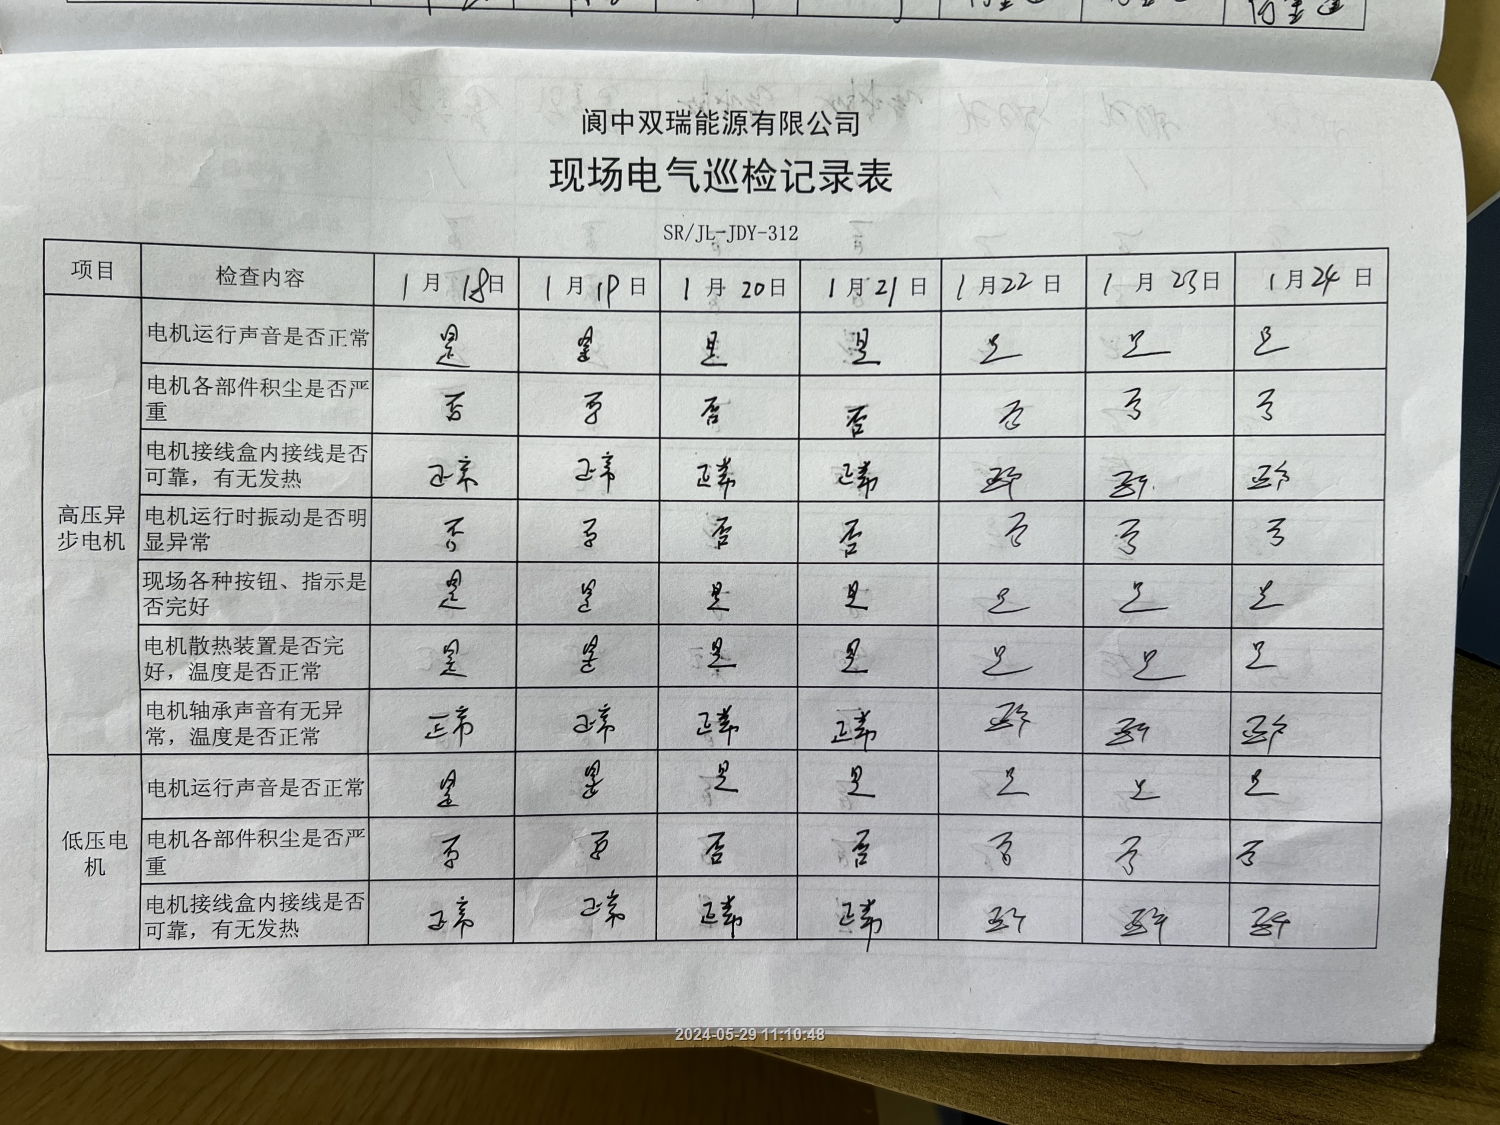 阆中双瑞能源有限公司
现场电气巡检记录表
SR/JL-JDY-312
项目 检查内容 1月18日 1月19日 1月20日 1月21日 1月22日 1月23日 1月24日
高压异步电机
电机运行声音是否正常 是 是 是 是 是 是 是
电机各部件积尘是否严重 否 否 否 否 否 否 否
电机接线盒内接线是否可靠，有无发热 正常 正常 正常 正常 正常 正常 正常
电机运行时振动是否明显异常 否 否 否 否 否 否 否
现场各种按钮、指示是否完好 是 是 是 是 是 是 是
电机散热装置是否完好，温度是否正常 是 是 是 是 是 是 是
电机轴承声音有无异常，温度是否正常 正常 正常 正常 正常 正常 正常 正常
低压电机
电机运行声音是否正常 是 是 是 是 是 是 是
电机各部件积尘是否严重 否 否 否 否 否 否 否
电机接线盒内接线是否可靠，有无发热 正常 正常 正常 正常 正常 正常 正常
2024-05-29 11:10:48